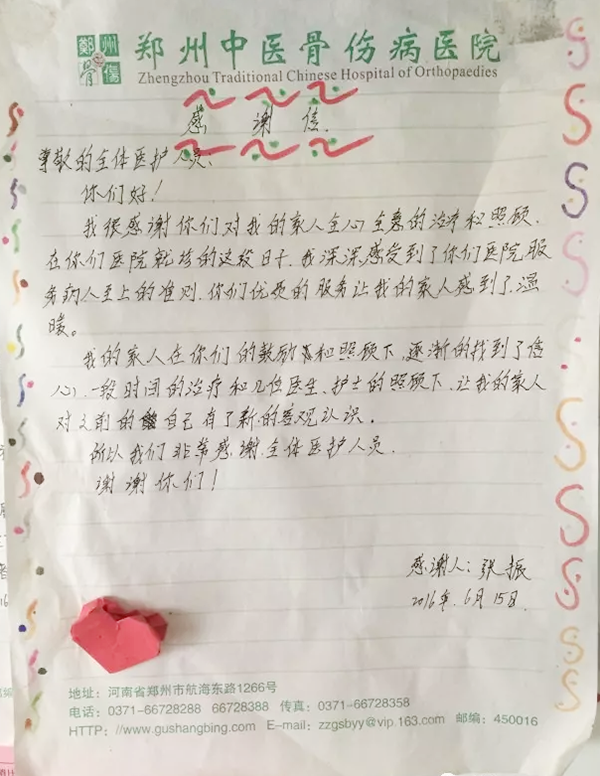 郑州
骨伤
郑州中医骨伤病医院
Zhengzhou Traditional Chinese Hospital of Orthopaedics
感 谢 信
尊敬的全体医护人员、
你们好！
我很感谢你们对我的家人全心全意的治疗和照顾.
在你们医院就诊的这段日子.我深深感受到了你们医院服
务病人至上的准则.你们优质的服务让我的家人感到了温
暖。
我的家人在你们的鼓励和照顾下,逐渐的找到了信
心,一段时间的治疗和几位医生、护士的照顾下.让我的家人
对之前的自己有了新的客观认识.
所以我们非常感谢全体医护人员.
谢谢你们！
感谢人：张振
2016年.6月15日.
地址：河南省郑州市航海东路1266号
电话：0371-66728288 66728388 传真：0371-66728358
HTTP：//www.gushangbing.com E-mail：zzgsbyy@vip.163.com 邮编：450016